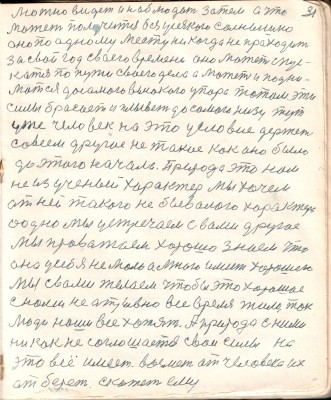 31
можно видеть и наблюдать затем а это
может получится без всякого солнышко
оно по одному месту никогда не проходит
за свой год своего времени оно может спус-
катся по пути своего дела а может и подни-
матся до самого высокого упора потом эти
силы бросает и плывет до самого низу тут
уже человек на это условие держит
совсем другое не такое как оно было
до этого начала. Природа это нам
не изученый характер мы хочем
от ней такого не бывалого характера
одно мы встречаем с вами другое
мы провожаем хорошо знаем что
она у себя не мало а много имеет хорошего
мы с вами желаем чтобы это хорошое
с нами не атувно все время жило, так
люди наши все хотят. А природа с ними
ни как не соглошается свои силы на
это всё имеет. возмет от человека их
от берет. скажет ему